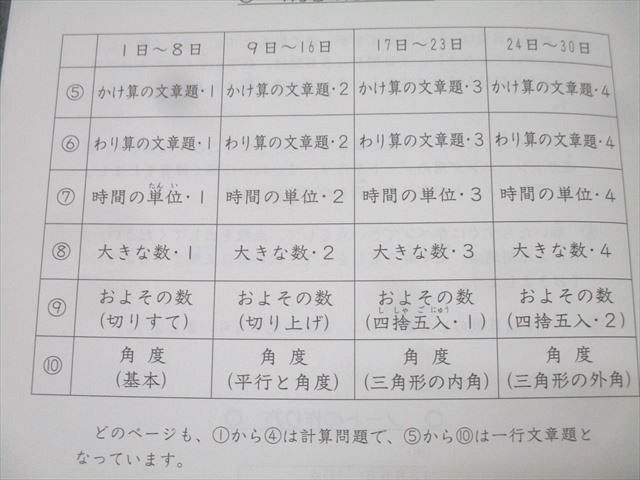 1日～8日 9日～16日 17日～23日 24日～30日
⑤ かけ算の文章題・1 かけ算の文章題・2 かけ算の文章題・3 かけ算の文章題・4
⑥ わり算の文章題・1 わり算の文章題・2 わり算の文章題・3 わり算の文章題・4
たん い
⑦ 時間の単位・1 時間の単位・2 時間の単位・3 時間の単位・4
⑧ 大きな数・1 大きな数・2 大きな数・3 大きな数・4
およその数 およその数 およその数 およその数
し しゃ ご にゅう
⑨ (切りすて) (切り上げ) (四捨五入・1) (四捨五入・2)
角度 角度 角度 角度
⑩ (基本) (平行と角度) (三角形の内角) (三角形の外角)
どのページも、①から④は計算問題で、⑤から⑩は一行文章題と
なっています。